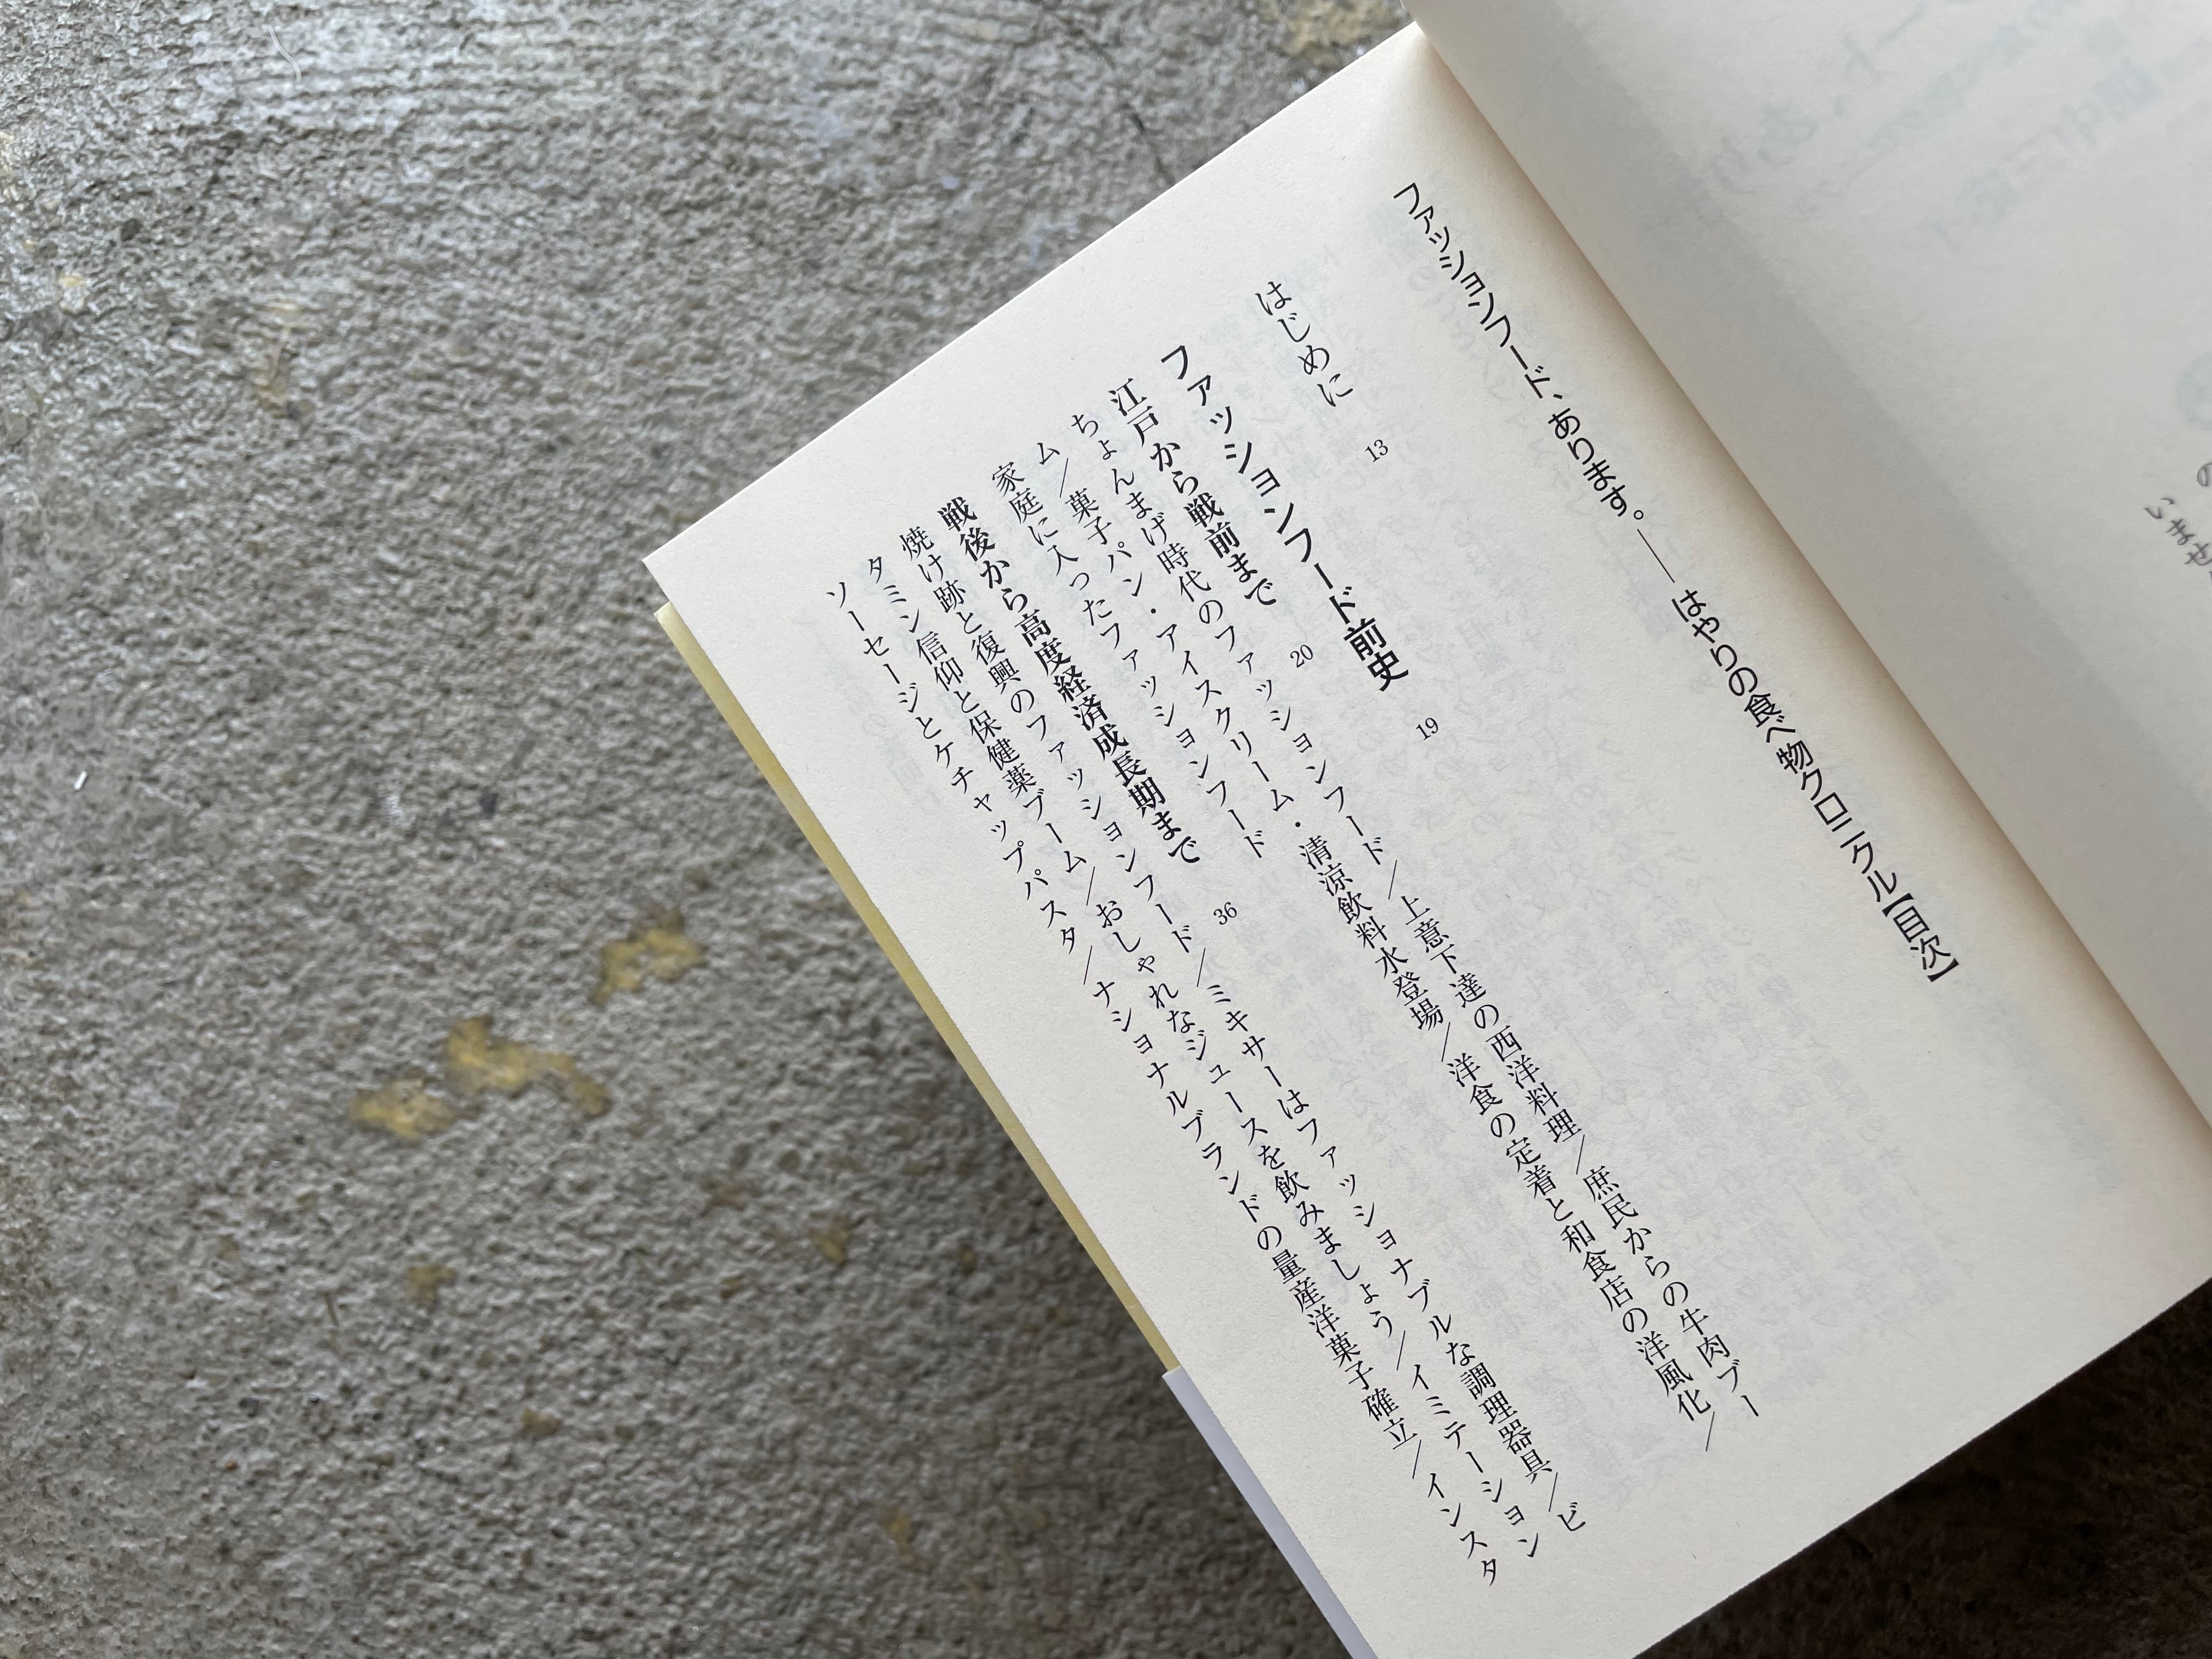 ファッションフード、あります。──はやりの食べ物クロニクル【目次】
はじめに 13
ファッションフード前史 19
江戸から戦前まで 20
ちょんまげ時代のファッションフード/上意下達の西洋料理/庶民からの牛肉ブー
ム/菓子パン・アイスクリーム・清涼飲料水登場/洋食の定着と和食店の洋風化/
家庭に入ったファッションフード
戦後から高度経済成長期まで 36
焼け跡と復興のファッションフード/ミキサーはファッショナブルな調理器具/ビ
タミン信仰と保健薬ブーム/おしゃれなジュースを飲みましょう/イミテーション
ソーセージとケチャップパスタ/ナショナルブランドの量産洋菓子確立/インスタ